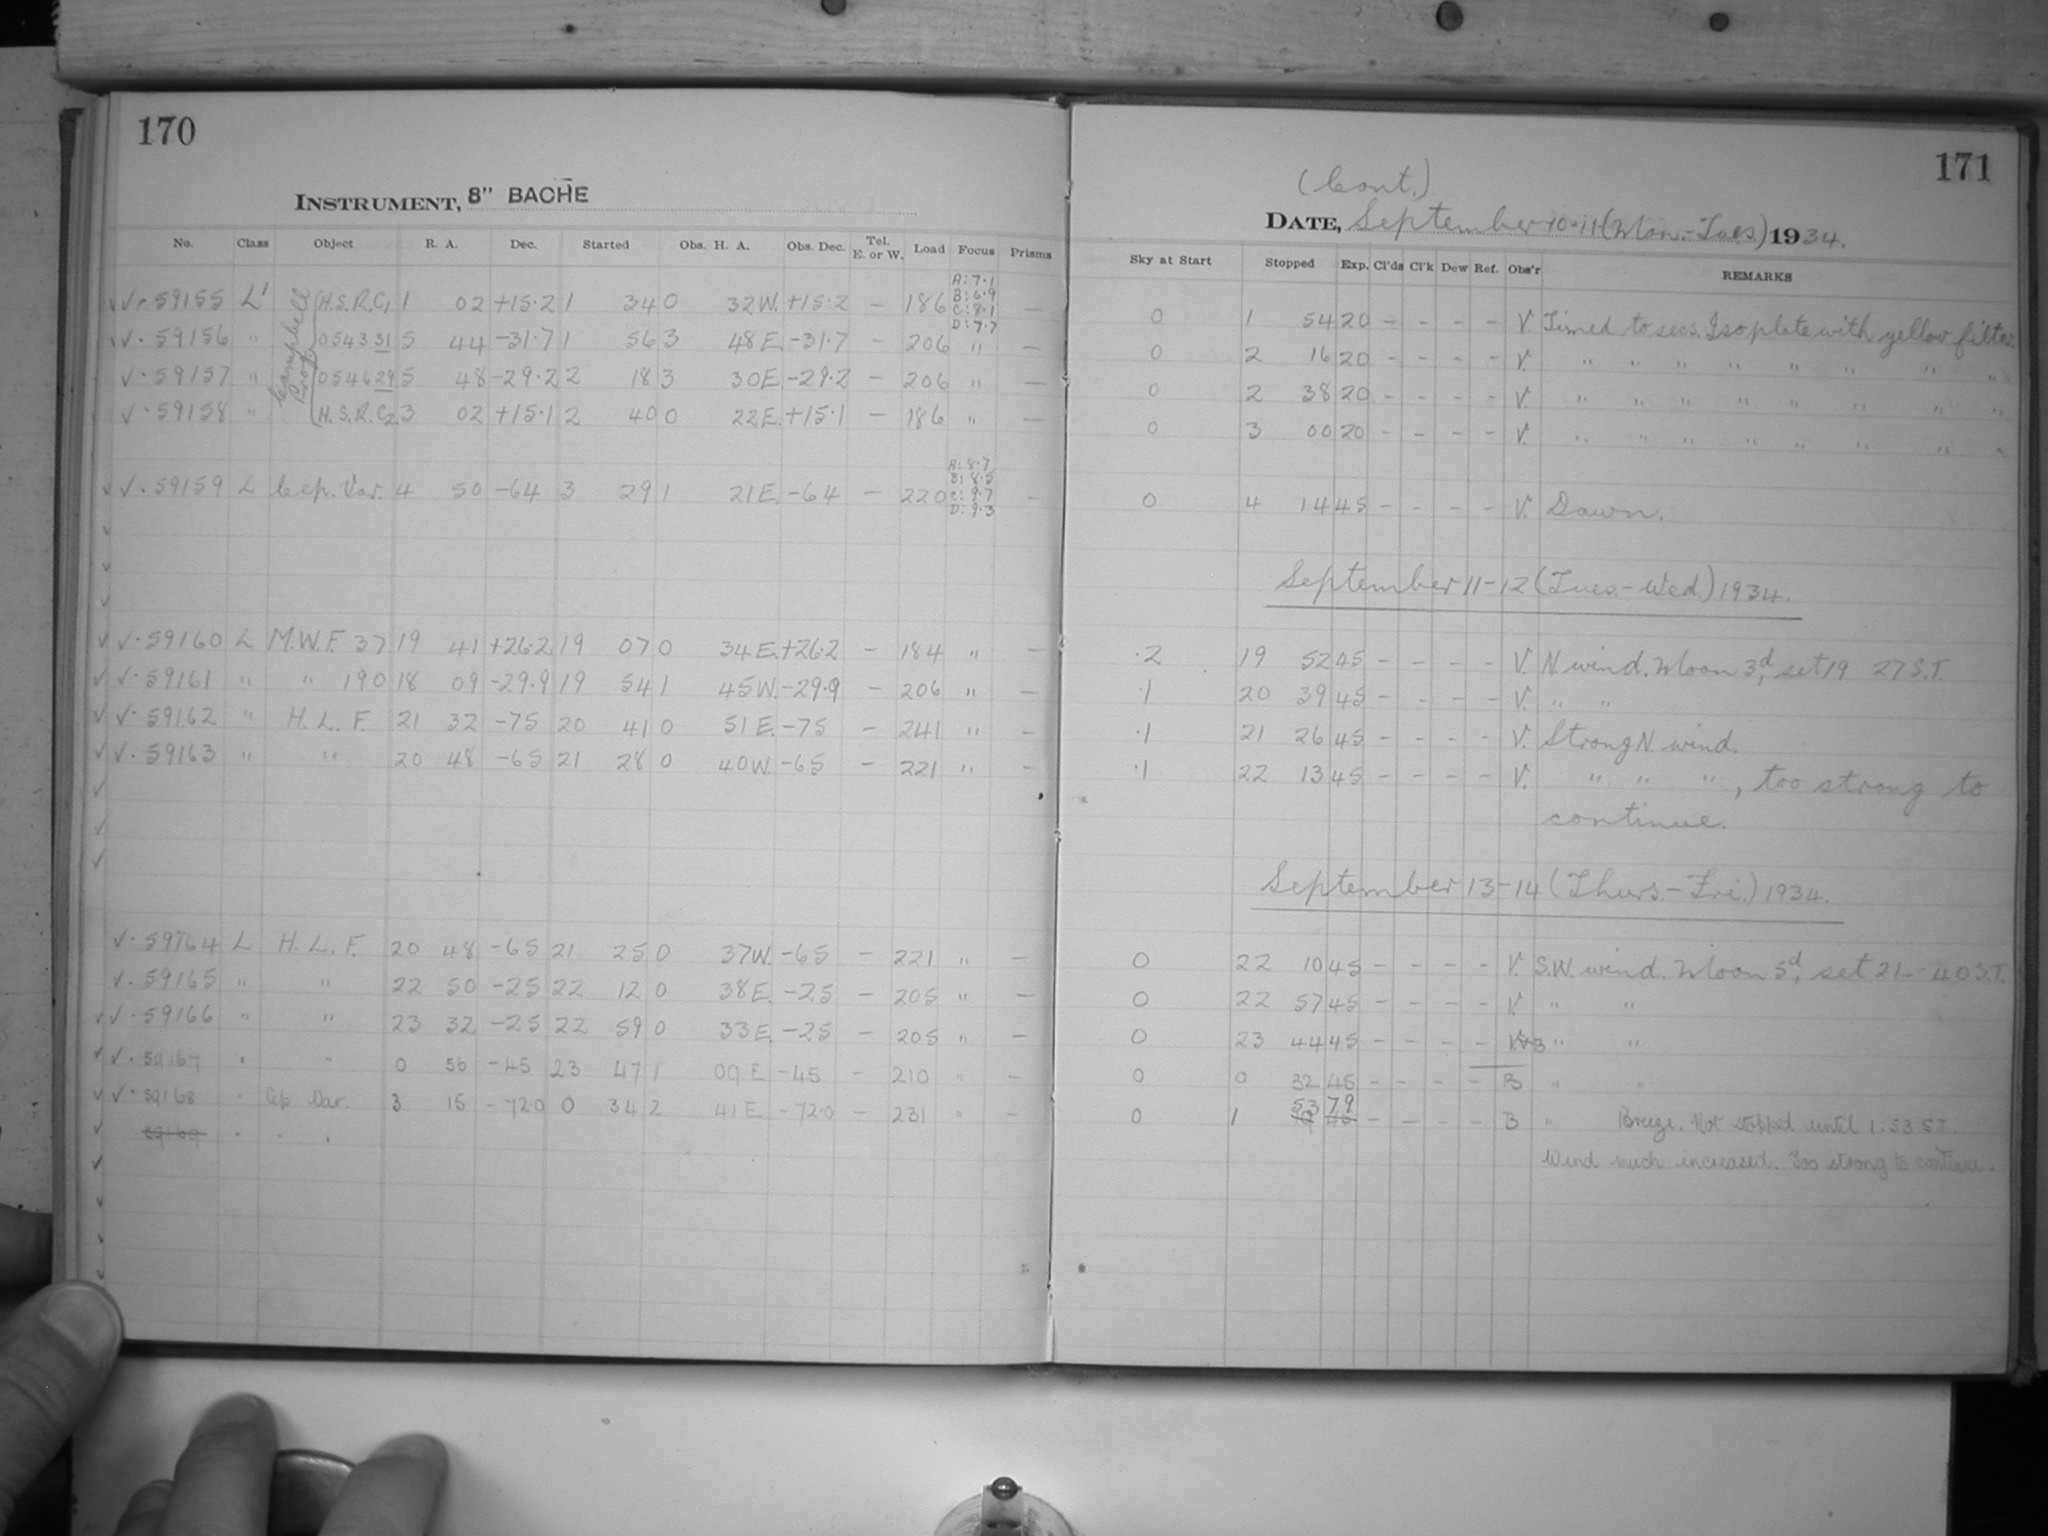 170
INSTRUMENT, 8" BACHE
No. Class Object R. A. Dec. Started Obs. H. A. Obs. Dec. Tel. E. or W. Load Focus Prisms
Campbell Prog.
✓ 59155 L' H.S.R.C1 1 02 +15.2 1 34 0 32W. +15.2 - 186 A: 7.1 B: 6.9 C: 8.1 D: 7.7 -
✓. 59156 " 054331 5 44 -31.7 1 56 3 48E. -31.7 - 206 " -
✓. 59157 " 054629 5 48 -29.2 2 18 3 30E. -29.2 - 206 " -
✓. 59158 " H.S.R.C2. 3 02 +15.1 2 40 0 22E. +15.1 - 186 " -
✓. 59159 L Cep. Var. 4 50 -64 3 29 1 21E. -64 - 220 A: 8.7 B: 8.5 C: 9.7 D: 9.3 -
✓. 59160 L M.W.F. 37 19 41 +26.2 19 07 0 34E. +26.2 - 184 " -
✓. 59161 " " 190 18 09 -29.9 19 54 1 45W. -29.9 - 206 " -
✓. 59162 " H. L. F. 21 32 -75 20 41 0 51E. -75 - 241 " -
✓. 59163 " " 20 48 -65 21 28 0 40W. -65 - 221 " -
✓. 59164 L H. L. F. 20 48 -65 21 25 0 37W. -65 - 221 " -
✓. 59165 " " 22 50 -25 22 12 0 38E. -25 - 205 " -
✓. 59166 " " 23 32 -25 22 59 0 33E. -25 - 205 " -
✓. 59167 " " 0 56 -45 23 47 1 09E -45 - 210 " -
✓. 59168 " Cep. Var. 3 15 -72.0 0 34 2 41E -72.0 - 231 " -
59169 " " "
171
(Cont.)
DATE, September 10-11 (Mon.-Tues.) 1934.
Sky at Start Stopped Exp. Cl'ds Cl'k Dew Ref. Obs'r REMARKS
0 1 54 20 - - - - V. Timed to secs. Iso plate with yellow filter.
0 2 16 20 - - - - V. " " " " " " " "
0 2 38 20 - - - - V. " " " " " " " "
0 3 00 20 - - - - V. " " " " " " " "
0 4 14 45 - - - - V. Dawn.
September 11-12 (Tues.-Wed.) 1934.
.2 19 52 45 - - - - V. N wind. Moon 3d, set 19 27 S.T.
.1 20 39 45 - - - - V. " "
.1 21 26 45 - - - - V. Strong N wind.
.1 22 13 45 - - - - V. " " ", too strong to
continue.
September 13-14 (Thurs.-Fri.) 1934.
0 22 10 45 - - - - V. S.W. wind. Moon 5d, set 21 40 S.T.
0 22 57 45 - - - - V. " "
0 23 44 45 - - - - V&B " "
0 0 32 45 - - - - B " "
0 1 53 79 - - - - B " Breeze. Not stopped until 1:53 S.T.
Wind much increased. Too strong to continue.